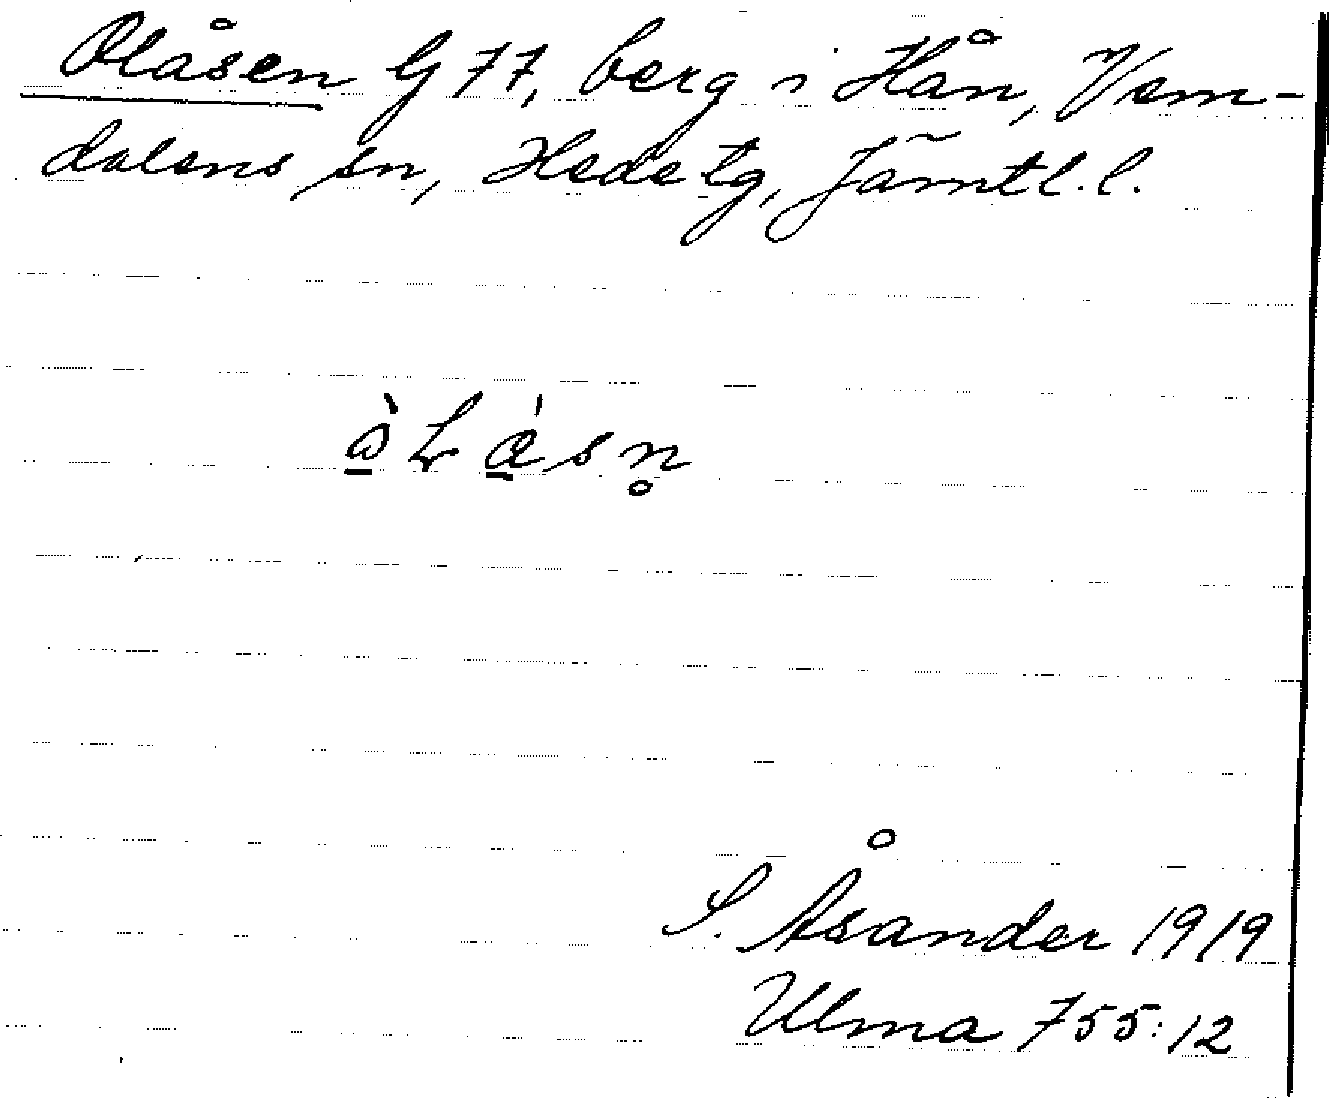 Olåsen G 77, berg i Hån, Vem-
dalens sn, Hede tg, Jämtl. l.
S. Åsander 1919
Ulma 755:12